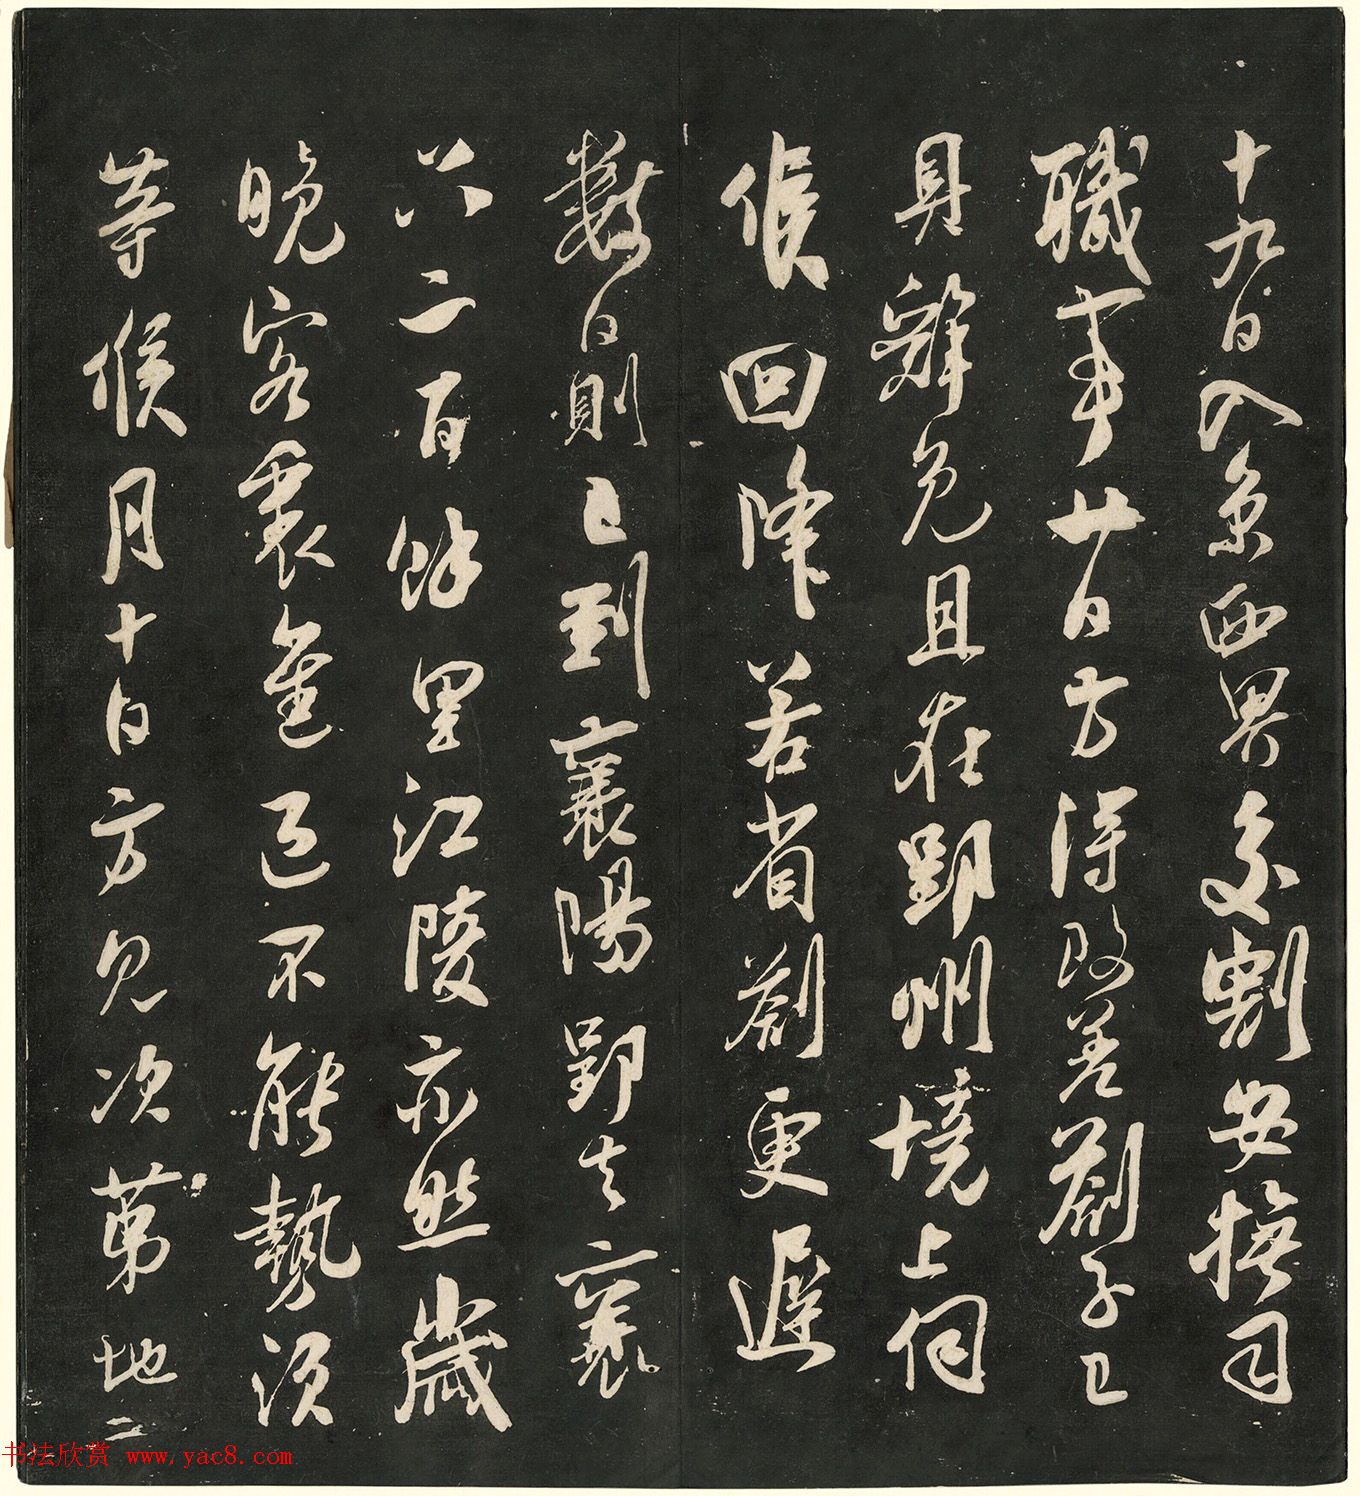 十九日入京西界交割安撫司
職事廿日方得改差劄子已
具辭免且在郢州境上伺
候回降若省劄更遲
數日則已到襄陽郢去襄
六二百餘里江陵亦然歲
晚客裏進退不能勢須
等候月十日方見次第地二
书法欣赏 www.yac8.com